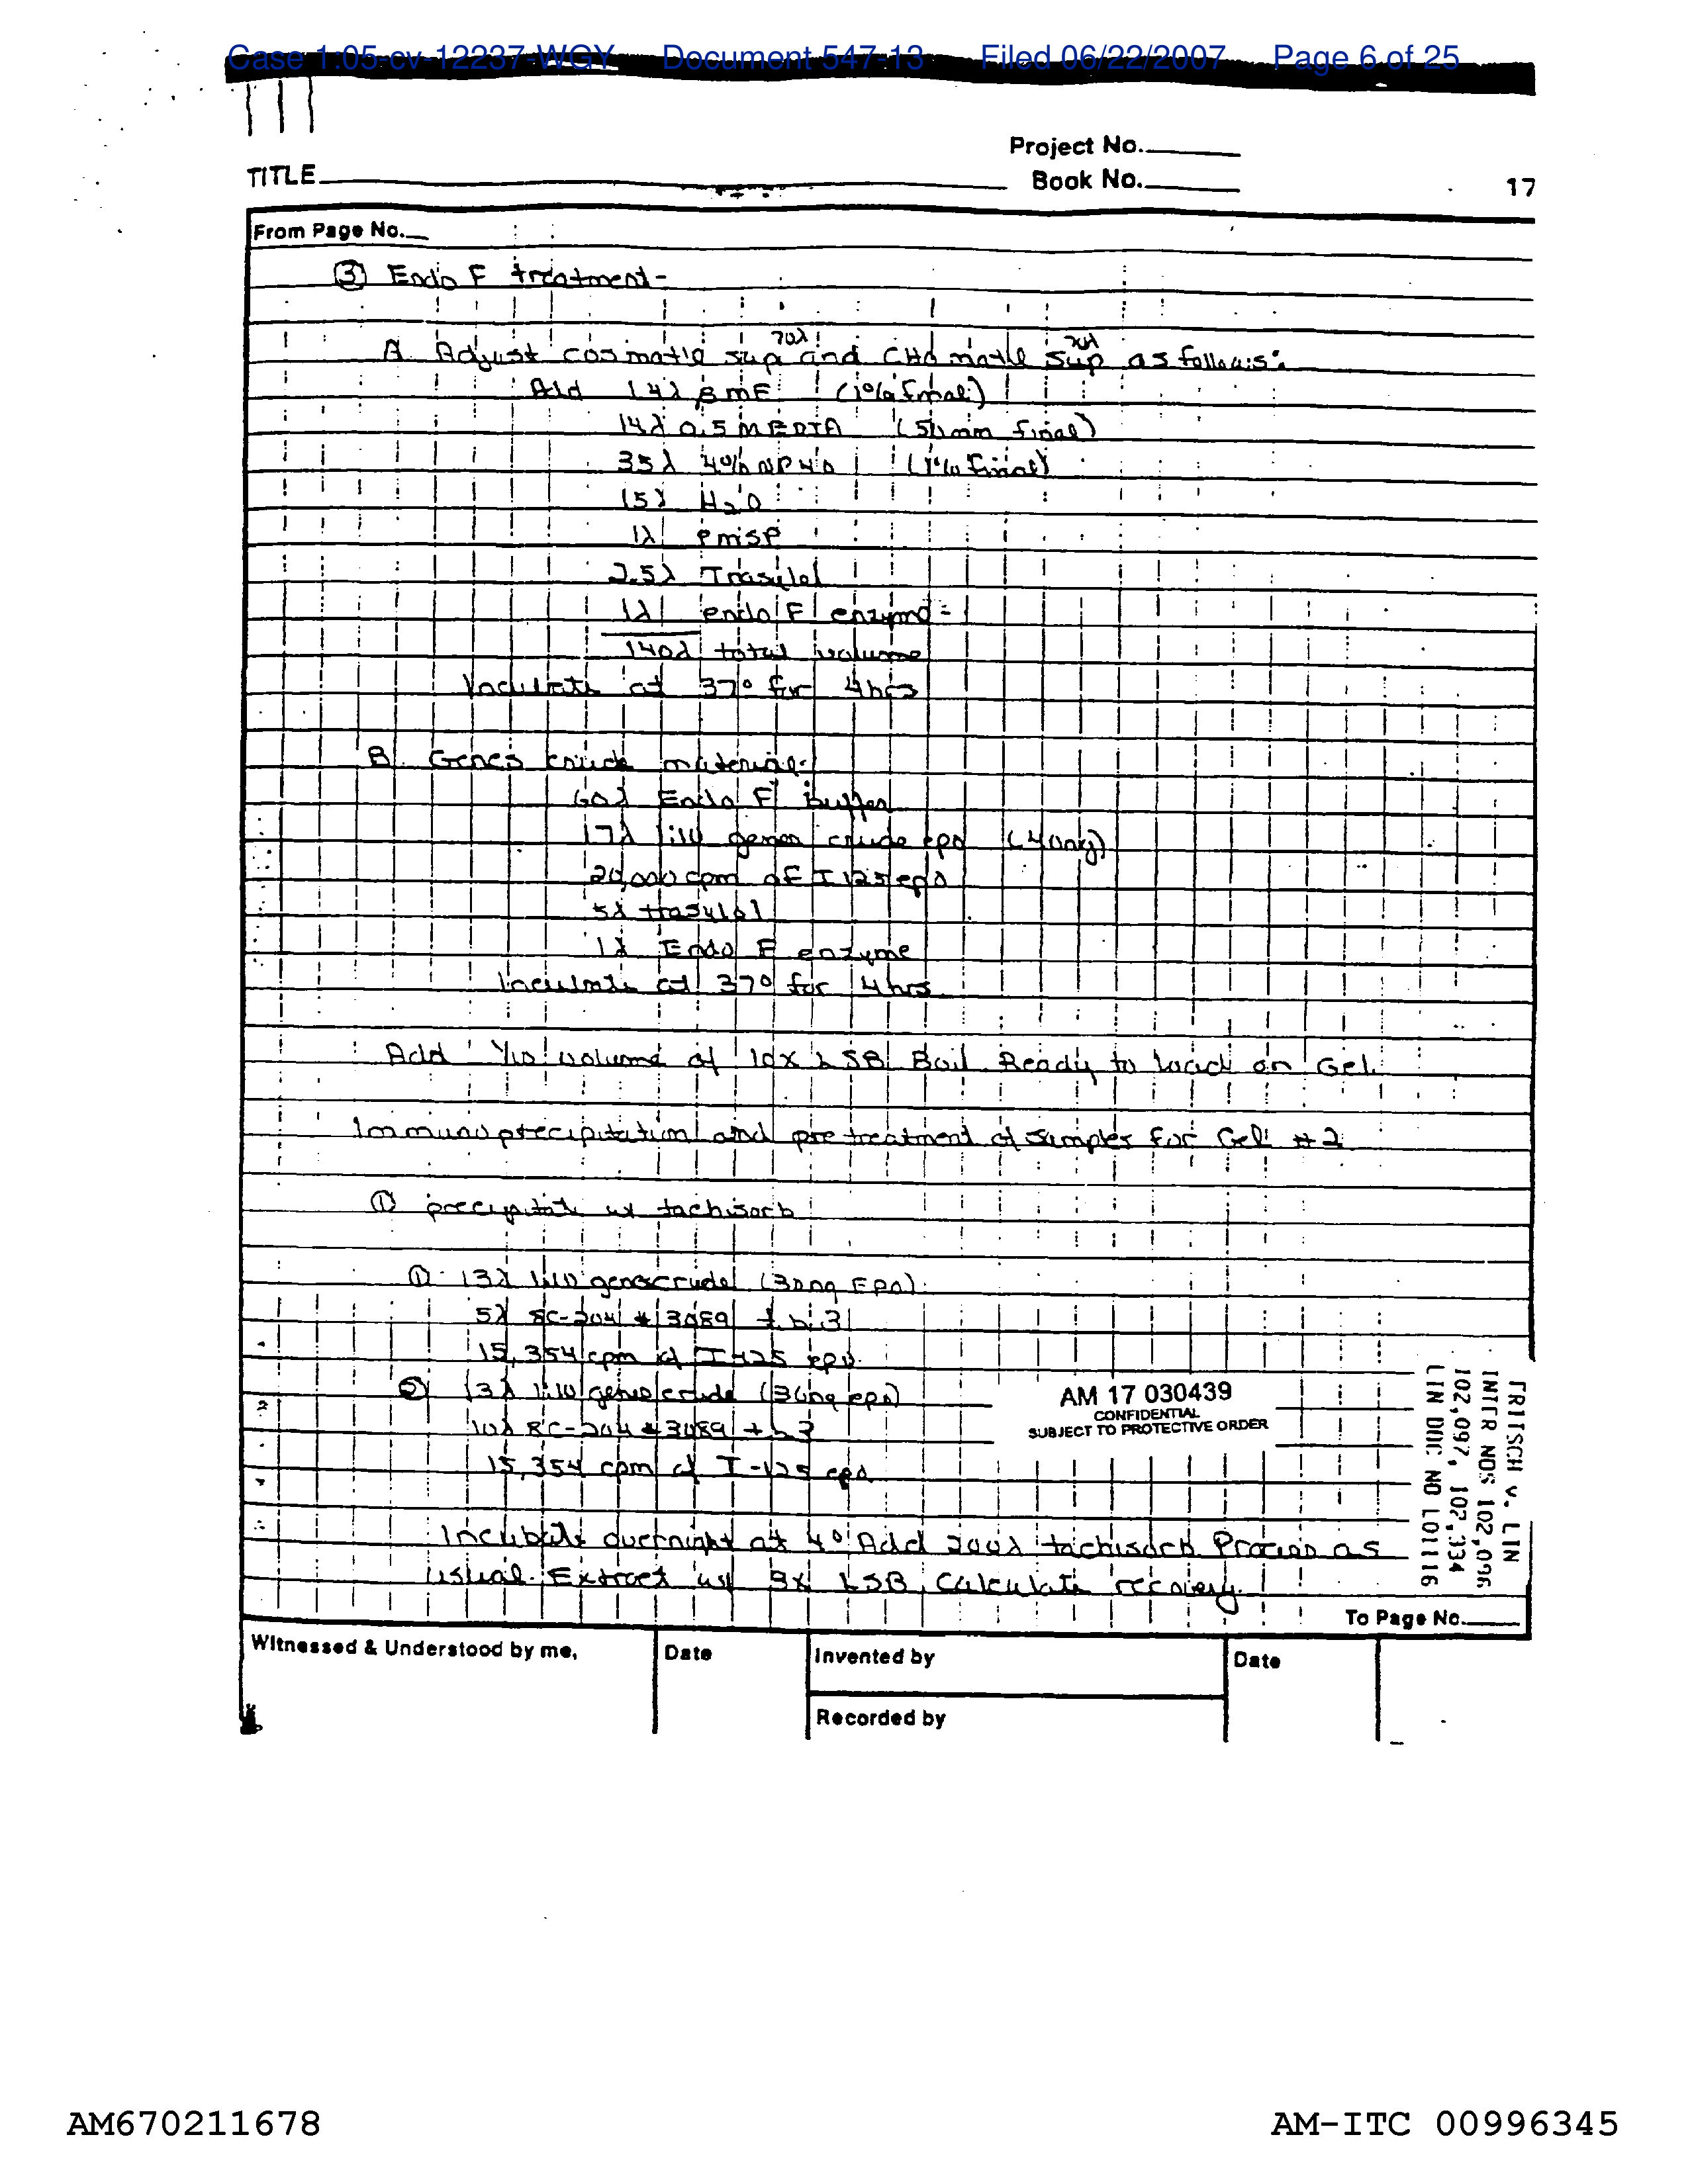 Case 1:05-cv-12237-WGY Document 547-13 Filed 06/22/2007 Page 6 of 25
Project No.
TITLE
Book No.
17
From Page No.
③ Endo F treatment-
70λ 70λ
A Adjust cos sup and CHO sup as follows:
Add 14λ BME (1% final)
14λ 0.5 M EDTA (50mm final)
35λ 4% NP40 (1% final)
15λ H2O
1λ PMSF
2.5λ Trasylol
1λ endo F enzyme
140λ total volume
Incubate at 37° for 4hrs
B. Genes crude material-
60λ Endo F buffer
17λ 1:10 genes crude epo (40ng)
20,000 cpm of I125 epo
5λ trasylol
1λ Endo F enzyme
Incubate at 37° for 4hrs
Add 1/10 volume of 10X LSB Boil Ready to load on Gel.
Immunoprecipitation and pretreatment of samples for Gel #2
① precipitate w/ tachisorb
① 13λ 1:10 genes crude (30ng EPO)
5λ RC-204 # 3089 t.b.3
15,354 cpm of I-125 epo
② 13λ 1:10 genes crude (30ng epo)
10λ RC-204 # 3089 t b 3
15,354 cpm of I-125 epo
Incubate overnight at 4° Add 200λ tachisorb Process as
usual. Extract w/ 3X LSB, Calculate recovery.
AM 17 030439
CONFIDENTIAL
SUBJECT TO PROTECTIVE ORDER
FRITSCH V. LIN
INTER NOS 102,096
102,097, 102,334
LIN DOC NO L01116
To Page No.
Witnessed & Understood by me,
Date
Invented by
Date
Recorded by
AM670211678
AM-ITC 00996345